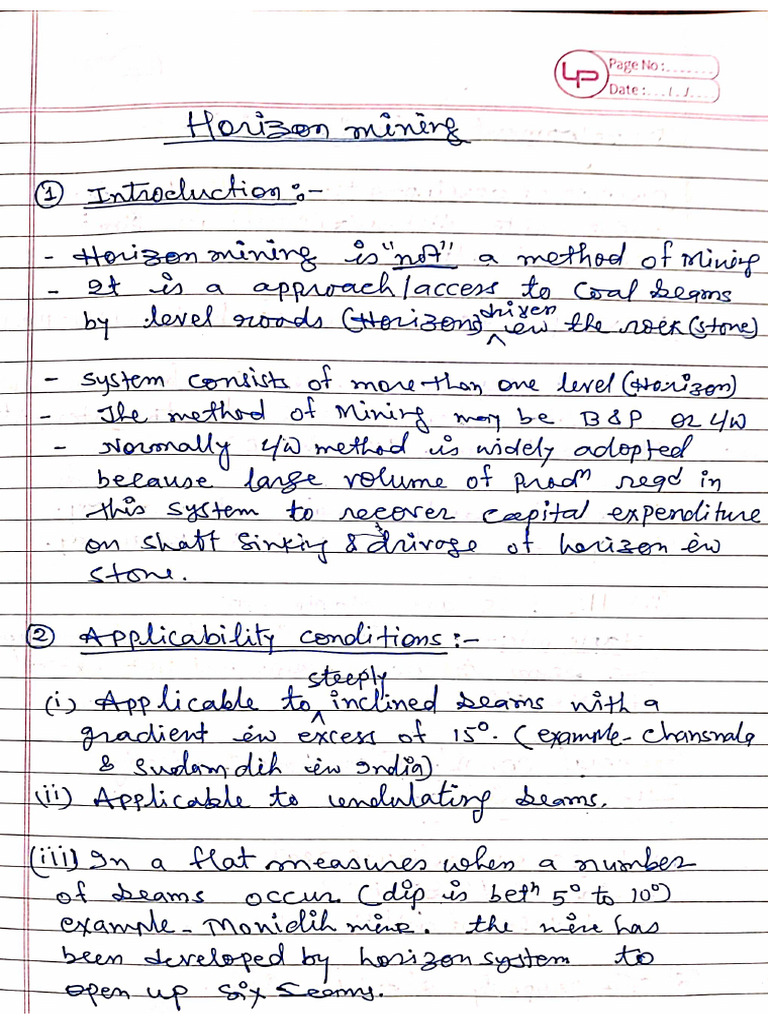 LP
Page No:.......
Date:..../..../....
Horizon mining
① Introduction:-
- Horizon mining is "not" a method of Mining
- It is a approach/access to coal seams
by level roads (Horizons) driven in the rock (stone)
- System consists of more than one level (Horizon)
- The method of Mining may be B&P or L/W
- Normally L/W method is widely adopted
because large volume of prodn reqd in
this system to recover capital expenditure
on shaft sinking & drivage of horizon in
stone.
② Applicability conditions:-
(i) Applicable to steeply inclined seams with a
gradient in excess of 15°. (example- Chansnala
& Sudamdih in India)
(ii) Applicable to undulating seams.
(iii) In a flat measures when a number
of seams occur (dip is betn 5° to 10°)
example- Monidih mine. the mine has
been developed by horizon system to
open up six seams.